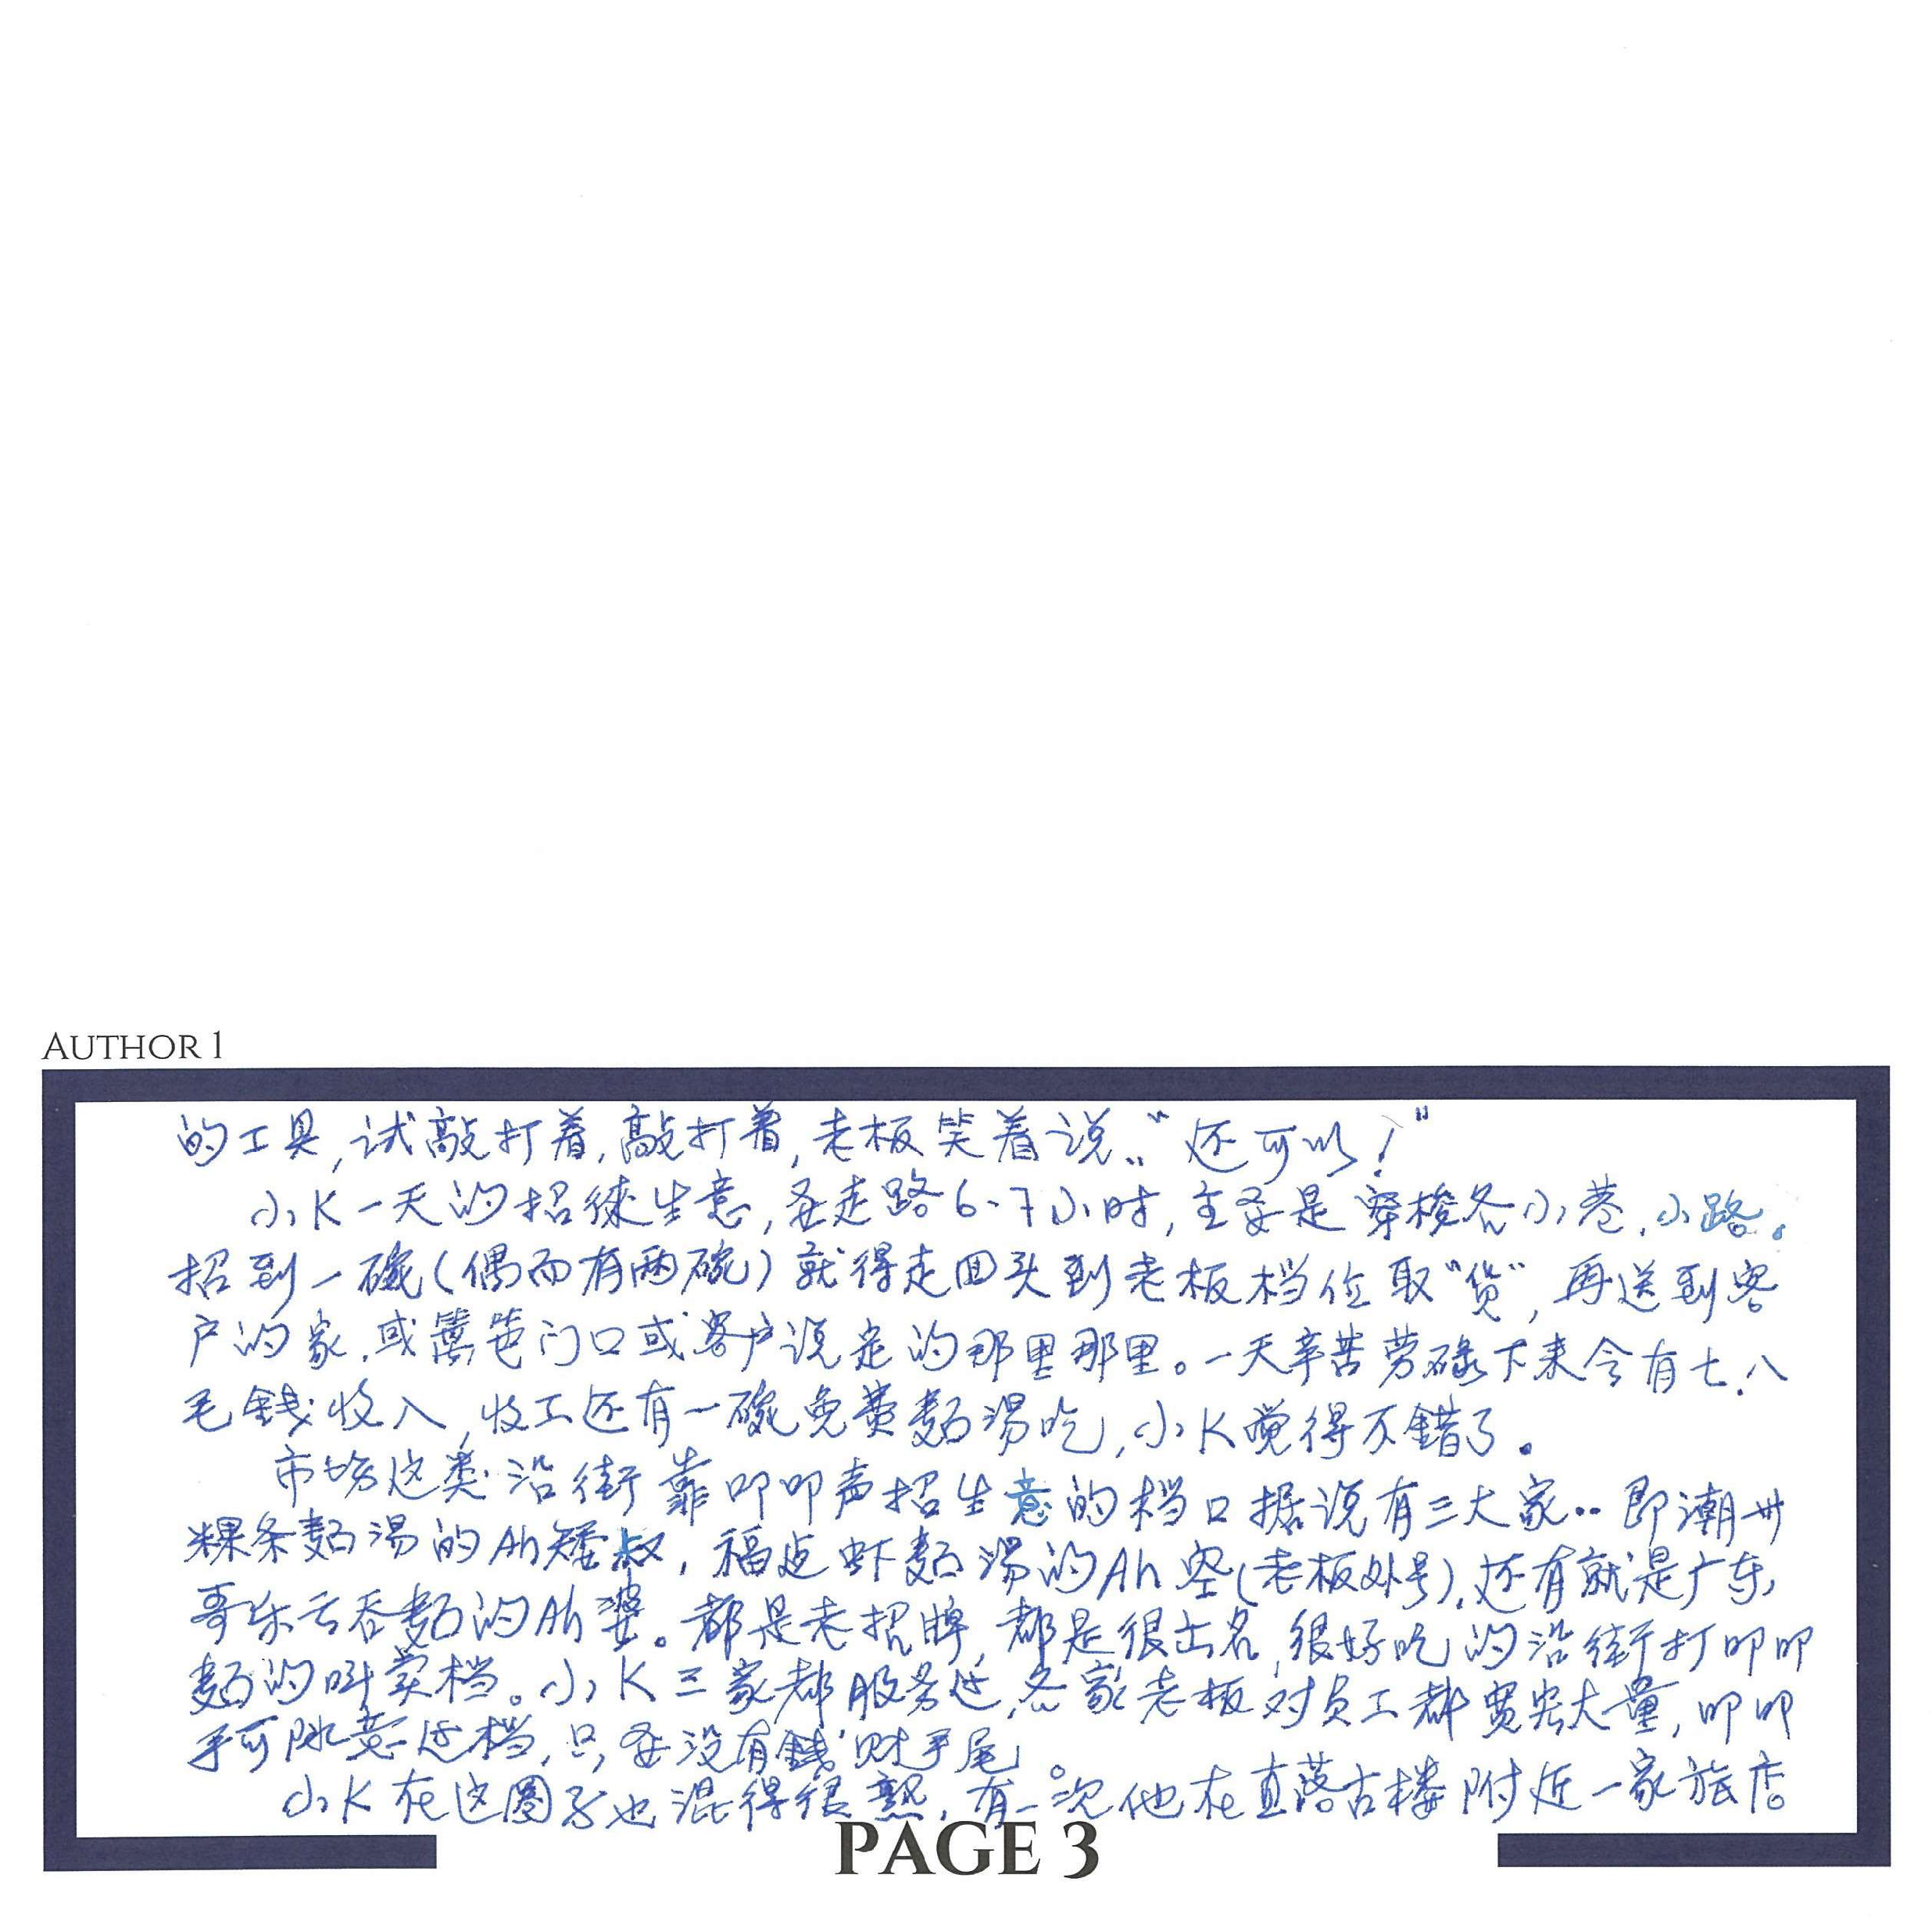 AUTHOR 1
的工具,试敲打着,敲打着,老板笑着说:“还可以!”
小K一天的招徕生意,要走路6-7小时,主要是穿梭各小巷,小路。
招到一碗(偶而有两碗)就得走回头到老板档位取“货”,再送到客
户的家,或篱笆门口或客户说定的那里那里。一天辛苦劳碌下来会有七.八
毛錢收入,收工还有一碗免费麵湯吃,小K觉得不錯了。
市场这类沿街靠叩叩声招生意的档口据说有三大家:即潮州
粿条麵湯的Ah矮叔,福建虾麵湯的Ah 空(老板外号),还有就是广东
哥乐云吞麵的Ah婆。都是老招牌,都是很出名,很好吃的沿街打叩叩
麵的叫卖档。小K三家都服务过,各家老板对员工都宽宏大量,叩叩
手可随意过档,只要没有錢财手尾。
小K在这圈子也混得很熟,有一次他在直落古楼附近一家旅店
PAGE 3